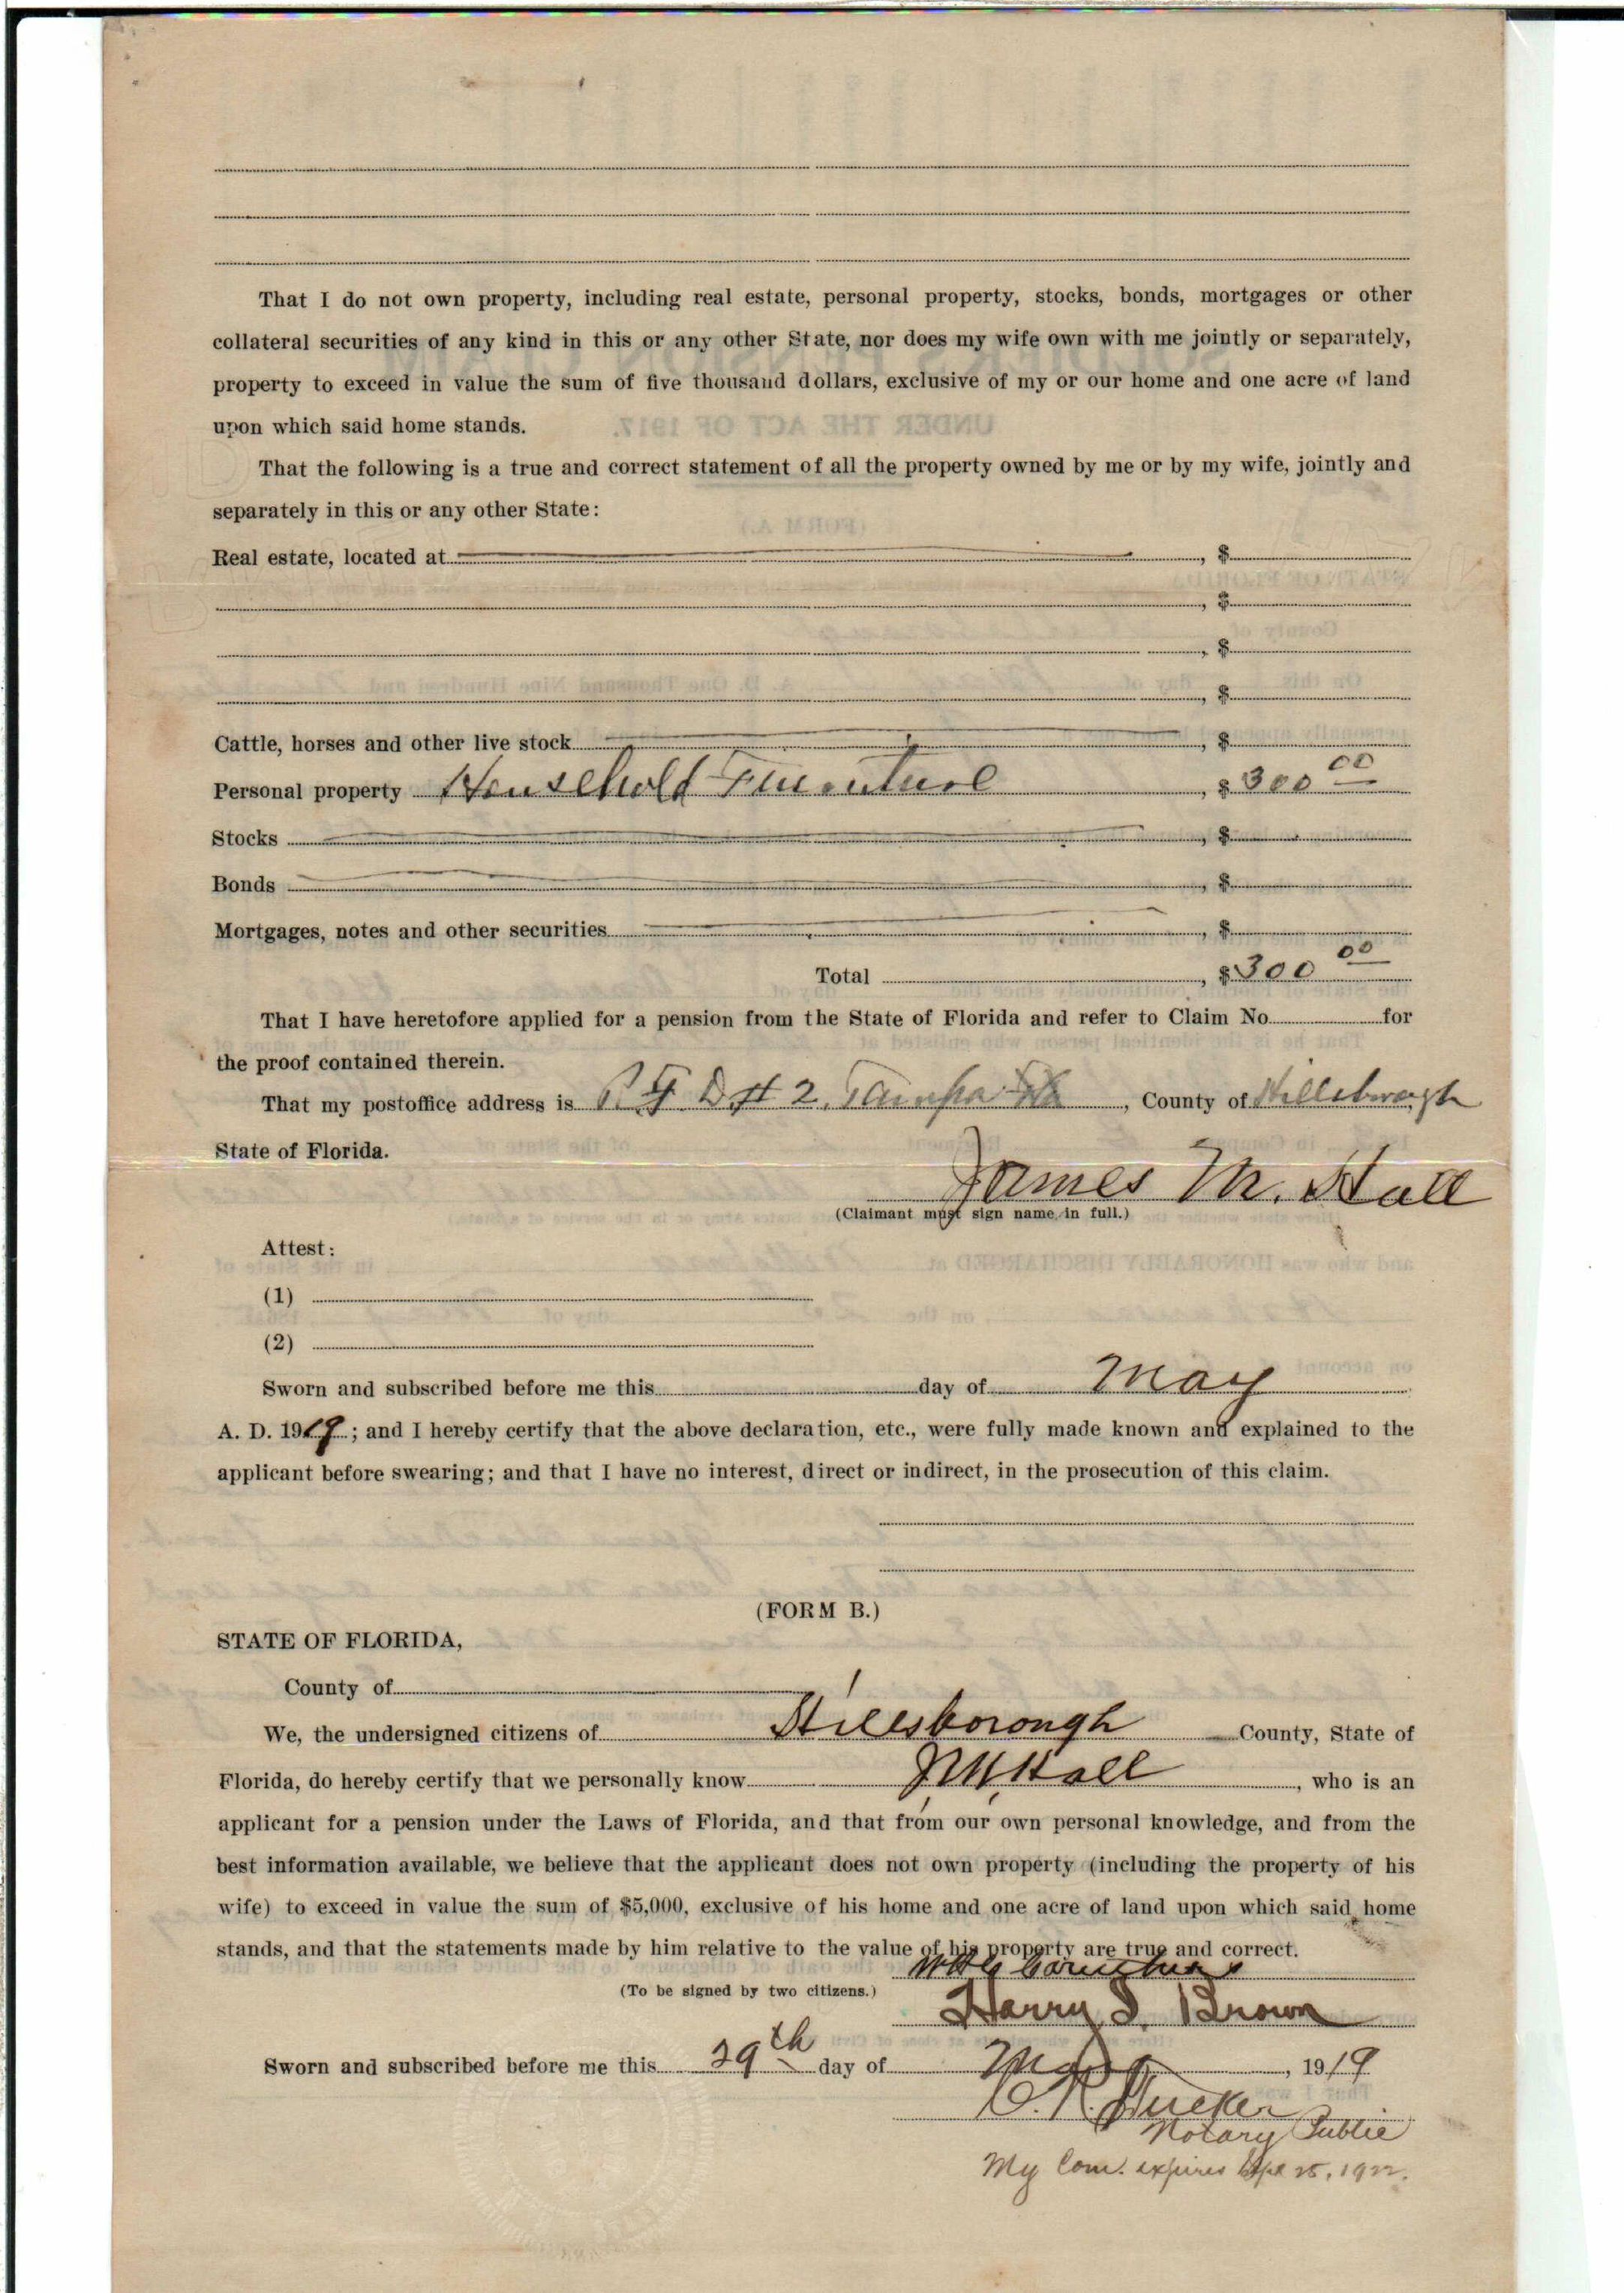 That I do not own property, including real estate, personal property, stocks, bonds, mortgages or other
collateral securities of any kind in this or any other State, nor does my wife own with me jointly or separately,
property to exceed in value the sum of five thousand dollars, exclusive of my or our home and one acre of land
upon which said home stands.
That the following is a true and correct statement of all the property owned by me or by my wife, jointly and
separately in this or any other State:
Real estate, located at , $
, $
, $
, $
Cattle, horses and other live stock , $
Personal property Household Furniture , $ 300 00
Stocks , $
Bonds , $
Mortgages, notes and other securities , $
Total , $ 300 00
That I have heretofore applied for a pension from the State of Florida and refer to Claim No. for
the proof contained therein.
That my postoffice address is R F D # 2, Tampa Fla , County of Hillsborough
State of Florida.
James M. Hall
(Claimant must sign name in full.)
Attest:
(1)
(2)
Sworn and subscribed before me this day of May
A. D. 1919; and I hereby certify that the above declaration, etc., were fully made known and explained to the
applicant before swearing; and that I have no interest, direct or indirect, in the prosecution of this claim.
(FORM B.)
STATE OF FLORIDA,
County of
We, the undersigned citizens of Hillsborough County, State of
Florida, do hereby certify that we personally know J M Hall , who is an
applicant for a pension under the Laws of Florida, and that from our own personal knowledge, and from the
best information available, we believe that the applicant does not own property (including the property of his
wife) to exceed in value the sum of $5,000, exclusive of his home and one acre of land upon which said home
stands, and that the statements made by him relative to the value of his property are true and correct.
(To be signed by two citizens.)
Harry S. Brown
Sworn and subscribed before me this 29th day of May , 1919
Notary Public
My Com. expires 25, 1922.